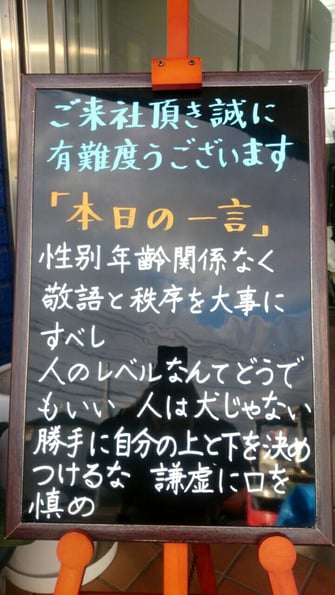 ご来社頂き誠に
有難度うございます
「本日の一言」
性別年齢関係なく
敬語と秩序を大事に
すべし
人のレベルなんてどうで
もいい 人は犬じゃない
勝手に自分の上と下を決め
つけるな 謙虚に口を
慎め